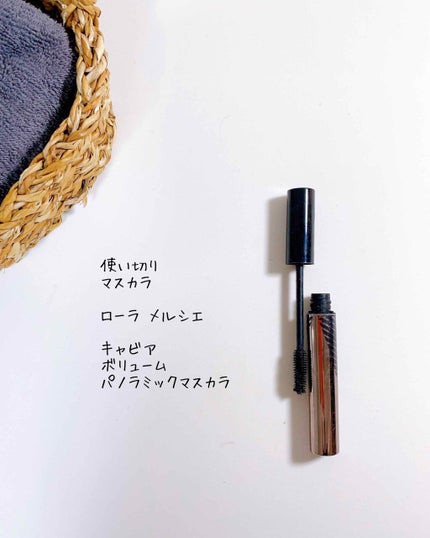 使い切り
マスカラ
ローラ メルシエ
キャビア
ボリューム
パノラミックマスカラ